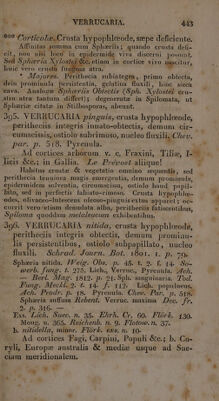 VERRUCARIA. 443
°°° Corticolæ. Crusta hypophlœode, sæpe deficiente.
Affinitas summa cum Sphæriis; quando crusta defi-
cit, non nisi loco in epidermide viva discerni possunt.
Sed Sphæria Xylostei &c. etiam in cortice vivo nascitur,
huic vero crusta fungina atra.
* Majores. Peritheciis subintegris, primo obtecta,
dein prominula persistentia, gelatina fluxili, hinc sicca
cava. Analoga Sphæriis Obtectis (Sph. Xylostei cru-
sta atra tantum differt); degenerata in Spilomata, ut
Sphæriæ citatæ in Stilbosporas, abeunt.
395. VERRUCARIA pinguis, crusta hypophlœode,
peritheciis integris innato-obtectis, demum cir-
cumcissis, ostiolo subrimoso, nucleo fluxili. Chev.
par. p. 518. Pyrenula.
Ad cortices arborum v. c. Fraxini, Tiliæ, I-
licis &c.; in Gallia. Le Prévost aliique!
Habitus crustæ & vegetatio omnino sequentis, sed
perithecia tenuiora magis emergentia, demum prominula,
epidermidem solventia, circumcissa, ostiolo haud papil-
lato, sed in perfectis labiato-rimoso. Crusta hypophlœo-
des, olivaceo-lutescens nitenti-pinguis extus apparet; oc-
currit vero etiam denudata alba, peritheciis fatiscentibus,
Spiloma quoddam melaleucum exhibentibus.
396. VERRUCARIA nitida, crusta hypophlœode,
peritheciis integris obtectis, demum prominu-
lis persistentibus, ostiolo subpapillato, nucleo
fluxili. Schrad. Journ. Bot. 1801. 1. p. 79.
Sphæria nitida. Weig. Obs. p. 45. t. 2. f. 14. So-
werb. fung. t. 275. Lich., Verruc., Pyrenula. Ach.
— Berl. Mag. 1812. p. 21. Sph. sanguinaria. Tod.
Fung. Meckl. 2. t. 14. f. 112. Lich. populineus,
Ach. Prodr. p. 18. Pyrenula. Chev. Par. p. 518.
Sphæria suffusa Rebent. Verruc. maxima Dec. fr.
2. p. 316. —
Exs. Lich. Suec. n. 35. Ehrh. Cr. 60. Flörk. 130.
Moug. n. 365. Reichenb. n. 9. Flotow. n. 37.
b. nitidella, minor. Flörk. exs. n. 10.
Ad cortices Fagi, Carpini, Populi &c.; b. Co-
ryli, Europæ australis & mediæ usque ad Sue-
ciam meridionalem.